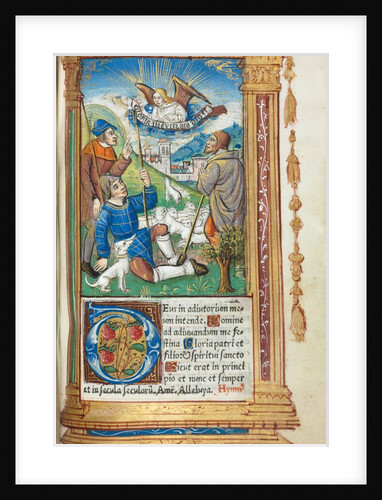 DEus in adiutorium me
um intende. Domine
ad adiuuandum me fe
stina Gloria patri et
filio & spiritui sancto
Sicut erat in princi
pio et nunc et semper
et in secula seculorū. Amē. Alleluya.